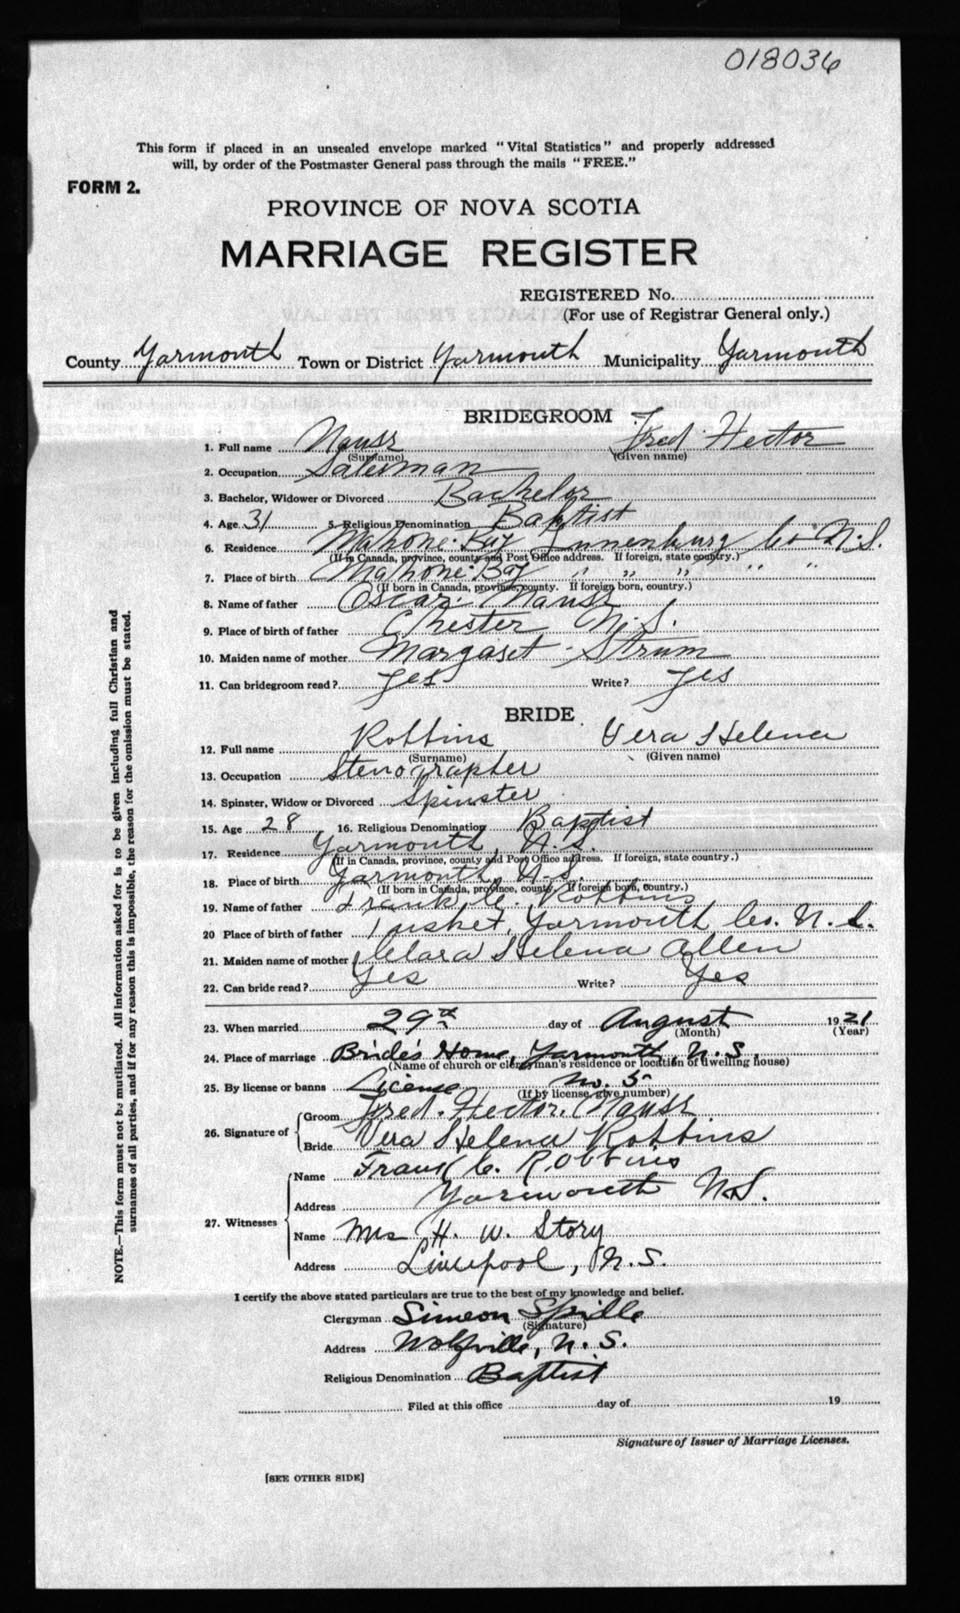 018036
This form if placed in an unsealed envelope marked "Vital Statistics" and properly addressed
will, by order of the Postmaster General pass through the mails "FREE."
FORM 2.
PROVINCE OF NOVA SCOTIA
MARRIAGE REGISTER
REGISTERED No.
(For use of Registrar General only.)
County Yarmouth Town or District Yarmouth Municipality Yarmouth
BRIDEGROOM
1. Full name Nauss Fred. Hector
(Surname) (Given name)
2. Occupation Salesman
3. Bachelor, Widower or Divorced Bachelor
4. Age 31 5. Religious Denomination Baptist
6. Residence Mahone Bay Lunenburg Co N.S.
(If in Canada, province, county and Post Office address. If foreign, state country.)
7. Place of birth Mahone Bay " " " " "
(If born in Canada, province, county. If foreign born, country.)
8. Name of father Oscar Nauss
9. Place of birth of father Chester N.S.
10. Maiden name of mother Margaset Strum
11. Can bridegroom read? yes Write? yes
BRIDE
12. Full name Robbins Vera Helena
(Surname) (Given name)
13. Occupation Stenographer
14. Spinster, Widow or Divorced Spinster
15. Age 28 16. Religious Denomination Baptist
17. Residence Yarmouth, N.S.
(If in Canada, province, county and Post Office address. If foreign, state country.)
18. Place of birth Yarmouth, N.S.
(If born in Canada, province, county. If foreign born, country.)
19. Name of father Frank C. Robbins
20 Place of birth of father Tusket, Yarmouth Co. N.S.
21. Maiden name of mother Clara Helena Allen
22. Can bride read? Yes Write? Yes
23. When married 29th day of August 1921
(Month) (Year)
24. Place of marriage Bride's Home, Yarmouth, N.S.
(Name of church or clergyman's residence or location of dwelling house)
25. By license or banns License No. 5
(If by license, give number)
26. Signature of Groom Fred. Hector. Nauss
Bride Vera Helena Robbins
27. Witnesses Name Frank C. Robbins
Address Yarmouth N.S.
Name Mrs H. W. Story
Address Liverpool, N.S.
I certify the above stated particulars are true to the best of my knowledge and belief.
Clergyman Simeon Spidle
(Signature)
Address Wolfville, N.S.
Religious Denomination Baptist
Filed at this office day of 19
Signature of Issuer of Marriage Licenses.
[SEE OTHER SIDE]
NOTE.—This form must not be mutilated. All information asked for is to be given including full Christian and
surnames of all parties, and if for any reason this is impossible, the reason for the omission must be stated.